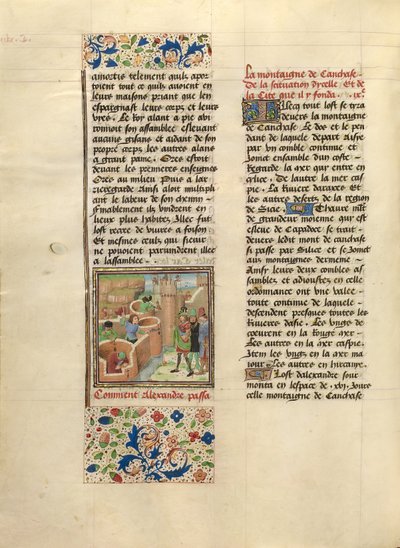 amortis telement quilz apor
toient tout ce quilz avoient en
leurs maisons priant que len
espargnast leurs corps et leurs
vies. Le Roy alant a pie avi
ronnoit son assamblee eslevant
aucuns gisans et aidant de son
propre corps les autres alans
a grant paine. Ores estoit
devant les premieres enseignes
Ores au milieu Puis a lar
rieregarde Ainsi aloit multipli
ant le labeur de son
finablement ilz vindrent en
lieux plus habitez Illec fut
lost recree de vivres a foison
Et mesmes ceulx qui sievir
ne pouoient parvindrent illec
a lassamblee
Comment Alexandre passa
la montaigne de Cauchase.
De la scituation dycelle. Et de
la Cite que il y fonda. .ix.
Illecq tout lost se tra
de Cauchase Le dos et le pen
dant de laquele depart Aisie
par ung comble continue et
Regarde la mer qui entre en
De lautre la mer cas
pie. La Riviere daraxes Et
les autres desertz de la region
Thaure mot
de grandeur moienne qui est
devers ledit mont de cauchase
si passe par Silice et se Joinct
aux montaignes dermenie
Ainsi leurs deux combles as
samblez et adioustez en celle
ordonnance ont une valee
toute continue de laquele
descendent presques toutes les
Rivieres dasie. Les unes
en la Rouge mer
Les autres en la mer caspie.
Item les ungz en la mer ma
iour Les autres en hircanye.
Lost dalexandre sour
monta en lespace de .xvi. Jours
celle montaigne de Cauchase